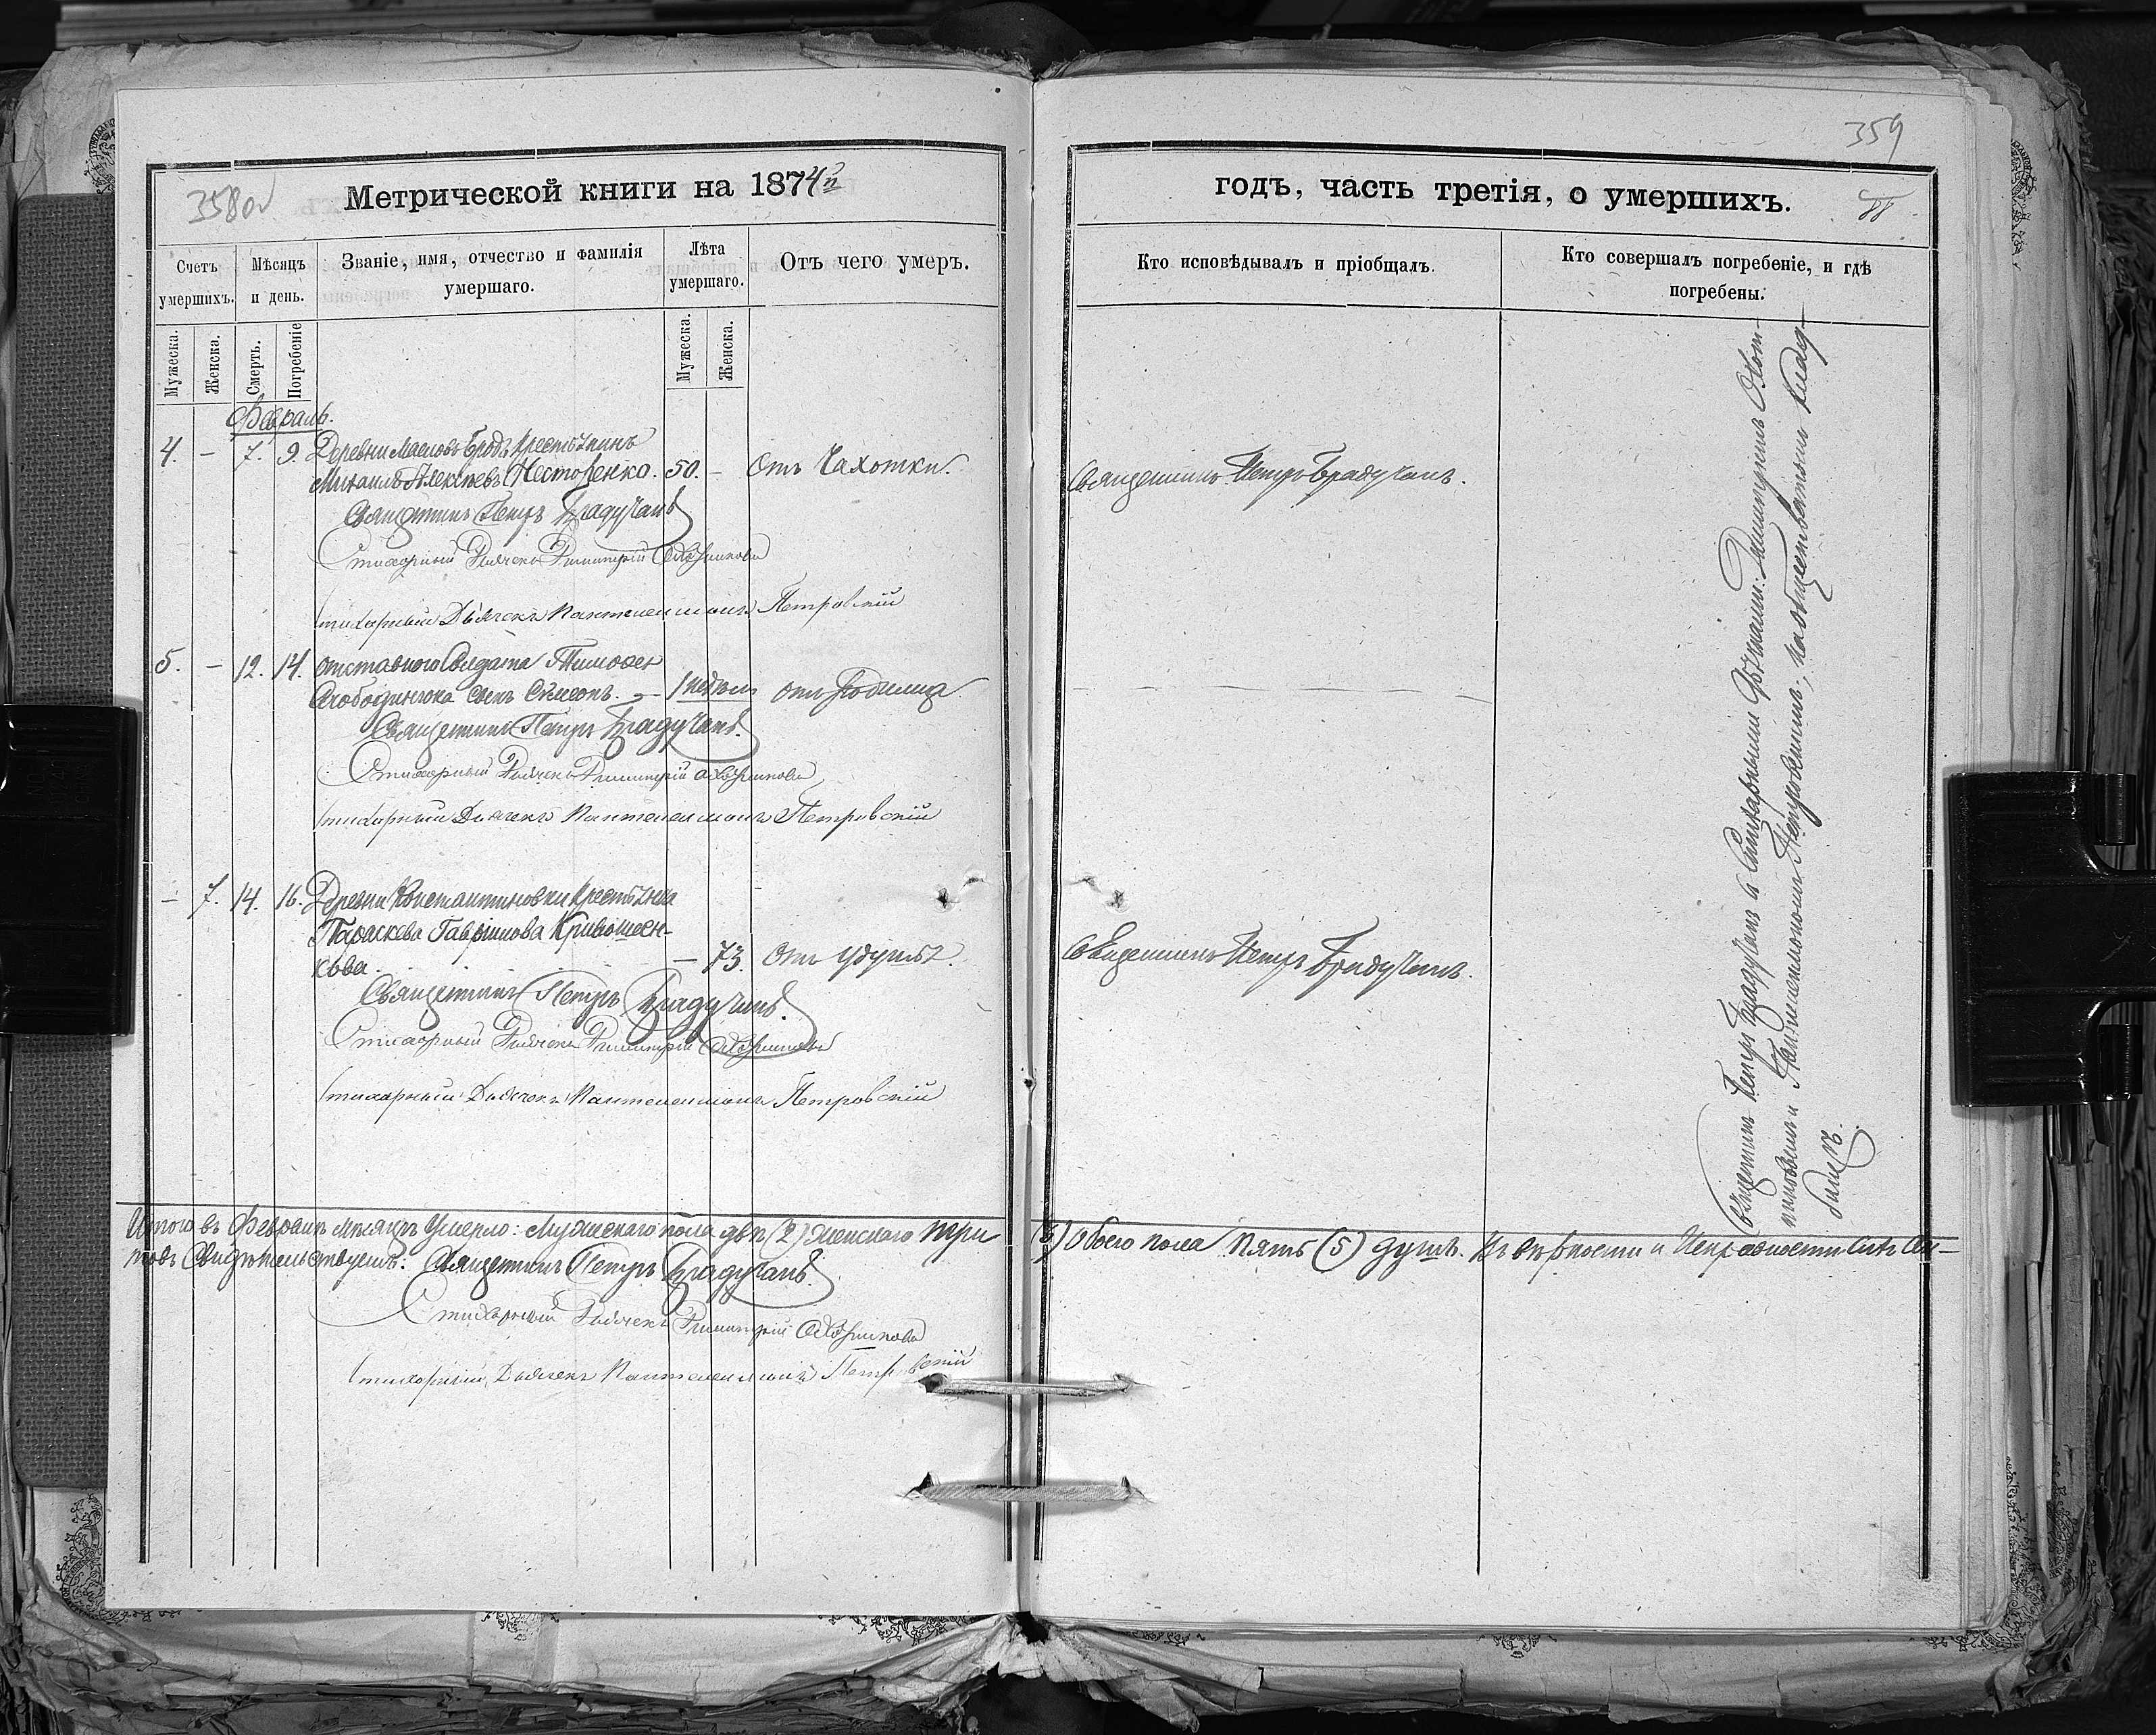 358об
Метрической книги на 1874й
Счетъ умершихъ.
Мѣсяцъ и день.
Званіе, имя, отчество и фамилія умершаго.
Лѣта умершаго.
Отъ чего умеръ.
Мужеска.
Женска.
Смерть.
Погребеніе
Мужеска.
Женска.
Февраль.
4. – 7. 9. Деревни Масловъ Бродъ Крестьянинъ
Михаилъ Алексѣевъ Несторенко. 50. – Отъ Чахотки.
Священникъ Петръ Брадучанъ
Стихарный Дьячекъ Димитрій
Стихарный Дьячекъ Пантелеимонъ Петровскій
5. – 12. 14. Отставного Солдата Тимофея
сынъ Сѵмеонъ. – 1 недѣли отъ Родимца.
Священникъ Петръ Брадучанъ.
Стихарный Дьячекъ Димитрій
Стихарный Дьячекъ Пантелеимонъ Петровскій
– 7. 14. 16. Деревни Константиновки Крестьянка
Параскева Гавріилова Кривошеен-
кова. – 73. Отъ Удушья.
Священникъ Петръ Брадучанъ.
Стихарный Дьячекъ Димитрій
Стихарный Дьячекъ Пантелеимонъ Петровскій
Итого въ Февралѣ мѣсяцѣ Умерло: Мужескаго пола два (2) Женскаго три
товъ Свидѣтельствуемъ: Священникъ Петръ Брадучанъ.
Стихарный Дьячекъ Димитрій
Стихарный Дьячекъ Пантелеимонъ Петровскій
359
годъ, часть третія, о умершихъ.
88
Кто исповѣдывалъ и пріобщалъ.
Кто совершалъ погребеніе, и гдѣ погребены.
Священникъ Петръ Брадучанъ.
Священникъ Петръ Брадучанъ.
Священникъ Петръ Брадучанъ съ Стихарными Дьячками: Димитріемъ
и Пантелеимономъ Петровскимъ, на общественномъ клад-
бищѣ.
(3) Обоего пола Пять (5) душъ. Въ вѣрности и Исправности